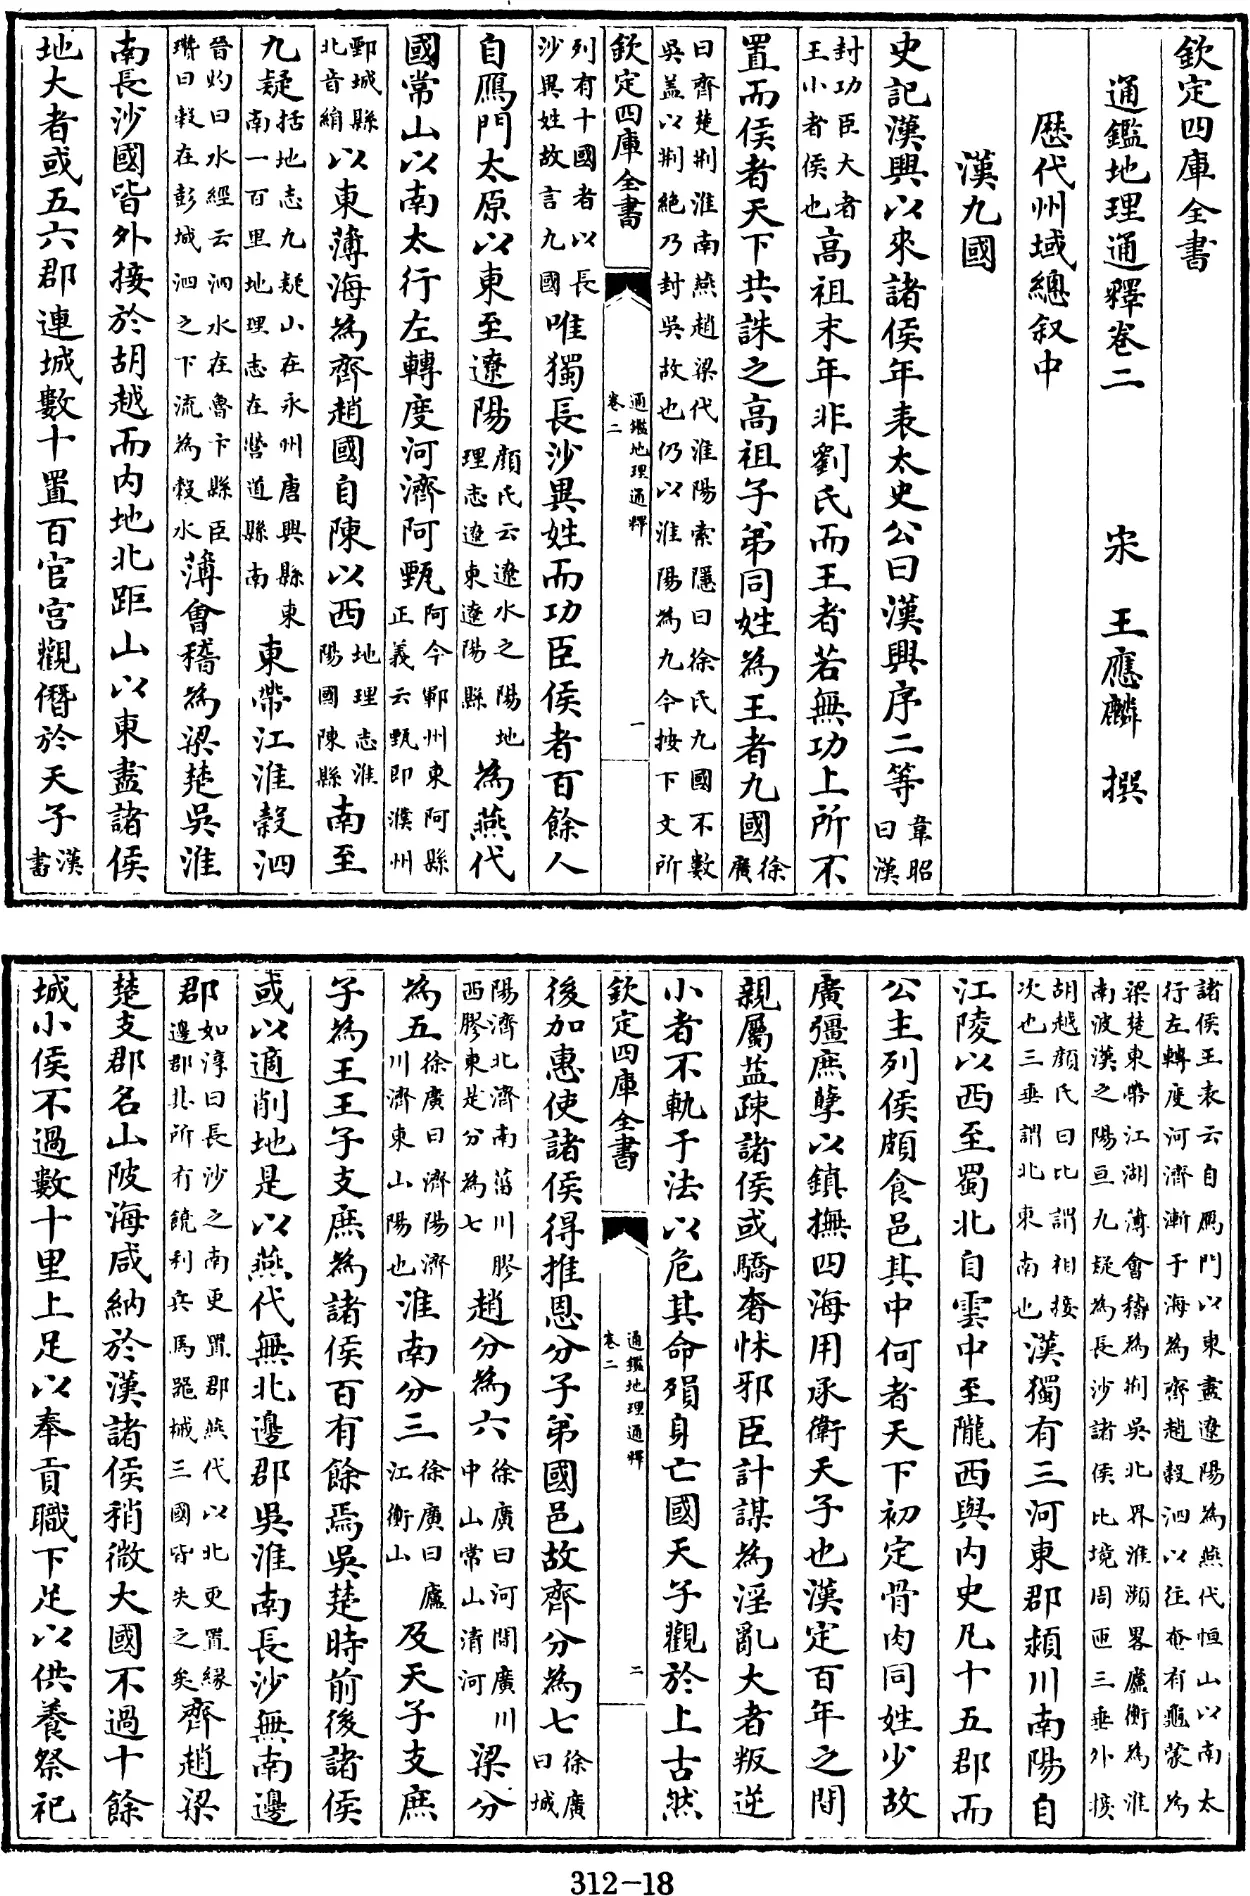 欽定四庫全書
通鑑地理通釋卷二 宋 王應麟 撰
歴代州域總叙中
漢九國
史記漢興以來諸侯年表太史公曰漢興序二等韋昭曰漢
封功臣大者王小者侯也高祖末年非劉氏而王者若無功上所不
置而侯者天下共誅之高祖子弟同姓為王者九國徐廣
曰齊楚荆淮南燕趙梁代淮陽索隱曰徐氏九國不數吳盖以荆絶乃封吳故也仍以淮陽為九今按下文所
欽定四庫全書 通鑑地理通釋 卷二 一
列有十國者以長沙異姓故言九國唯獨長沙異姓而功臣侯者百餘人
自鴈門太原以東至遼陽顔氏云遼水之陽地理志遼東遼陽縣為燕代
國常山以南太行左轉度河濟阿甄阿今鄆州東阿縣正義云甄即濮州
鄄城縣北音絹以東薄海為齊趙國自陳以西地理志淮陽國陳縣南至
九疑括地志九疑山在永州唐興縣東南一百里地理志在營道縣南東帶江淮穀泗
晉灼曰水經云泗水在魯卞縣臣瓚曰穀在彭城泗之下流為穀水薄會稽為梁楚吳淮
南長沙國皆外接於胡越而内地北距山以東盡諸侯
地大者或五六郡連城數十置百官宮觀僭於天子漢書
諸侯王表云自鴈門以東盡遼陽為燕代恒山以南太行左轉度河濟漸于海為齊趙穀泗以往奄有龜蒙為
梁楚東帶江湖薄會稽為荆吳北界淮瀕畧廬衡為淮南波漢之陽亘九疑為長沙諸侯比境周匝三垂外接
胡越顔氏曰比謂相接次也三垂謂北東南也漢獨有三河東郡潁川南陽自
江陵以西至蜀北自雲中至隴西與内史凡十五郡而
公主列侯頗食邑其中何者天下初定骨肉同姓少故
廣彊庶孽以鎮撫四海用承衛天子也漢定百年之間
親屬益疎諸侯或驕奢怵邪臣計謀為淫亂大者叛逆
小者不軌于法以危其命殞身亡國天子觀於上古然
欽定四庫全書 通鑑地理通釋 卷二 二
後加惠使諸侯得推恩分子弟國邑故齊分為七徐廣曰城
陽濟北濟南菑川膠西膠東是分為七趙分為六徐廣曰河間廣川中山常山清河梁分
為五徐廣曰濟陽濟川濟東山陽也淮南分三徐廣曰廬江衡山及天子支庶
子為王王子支庶為諸侯百有餘焉吳楚時前後諸侯
或以適削地是以燕代無北邊郡吳淮南長沙無南邊
郡如淳曰長沙之南更置郡燕代以北更置緣邊郡其所有饒利兵馬器械三國皆失之矣齊趙梁
楚支郡名山陂海咸納於漢諸侯稍微大國不過十餘
城小侯不過數十里上足以奉貢職下足以供養祭祀
312-18